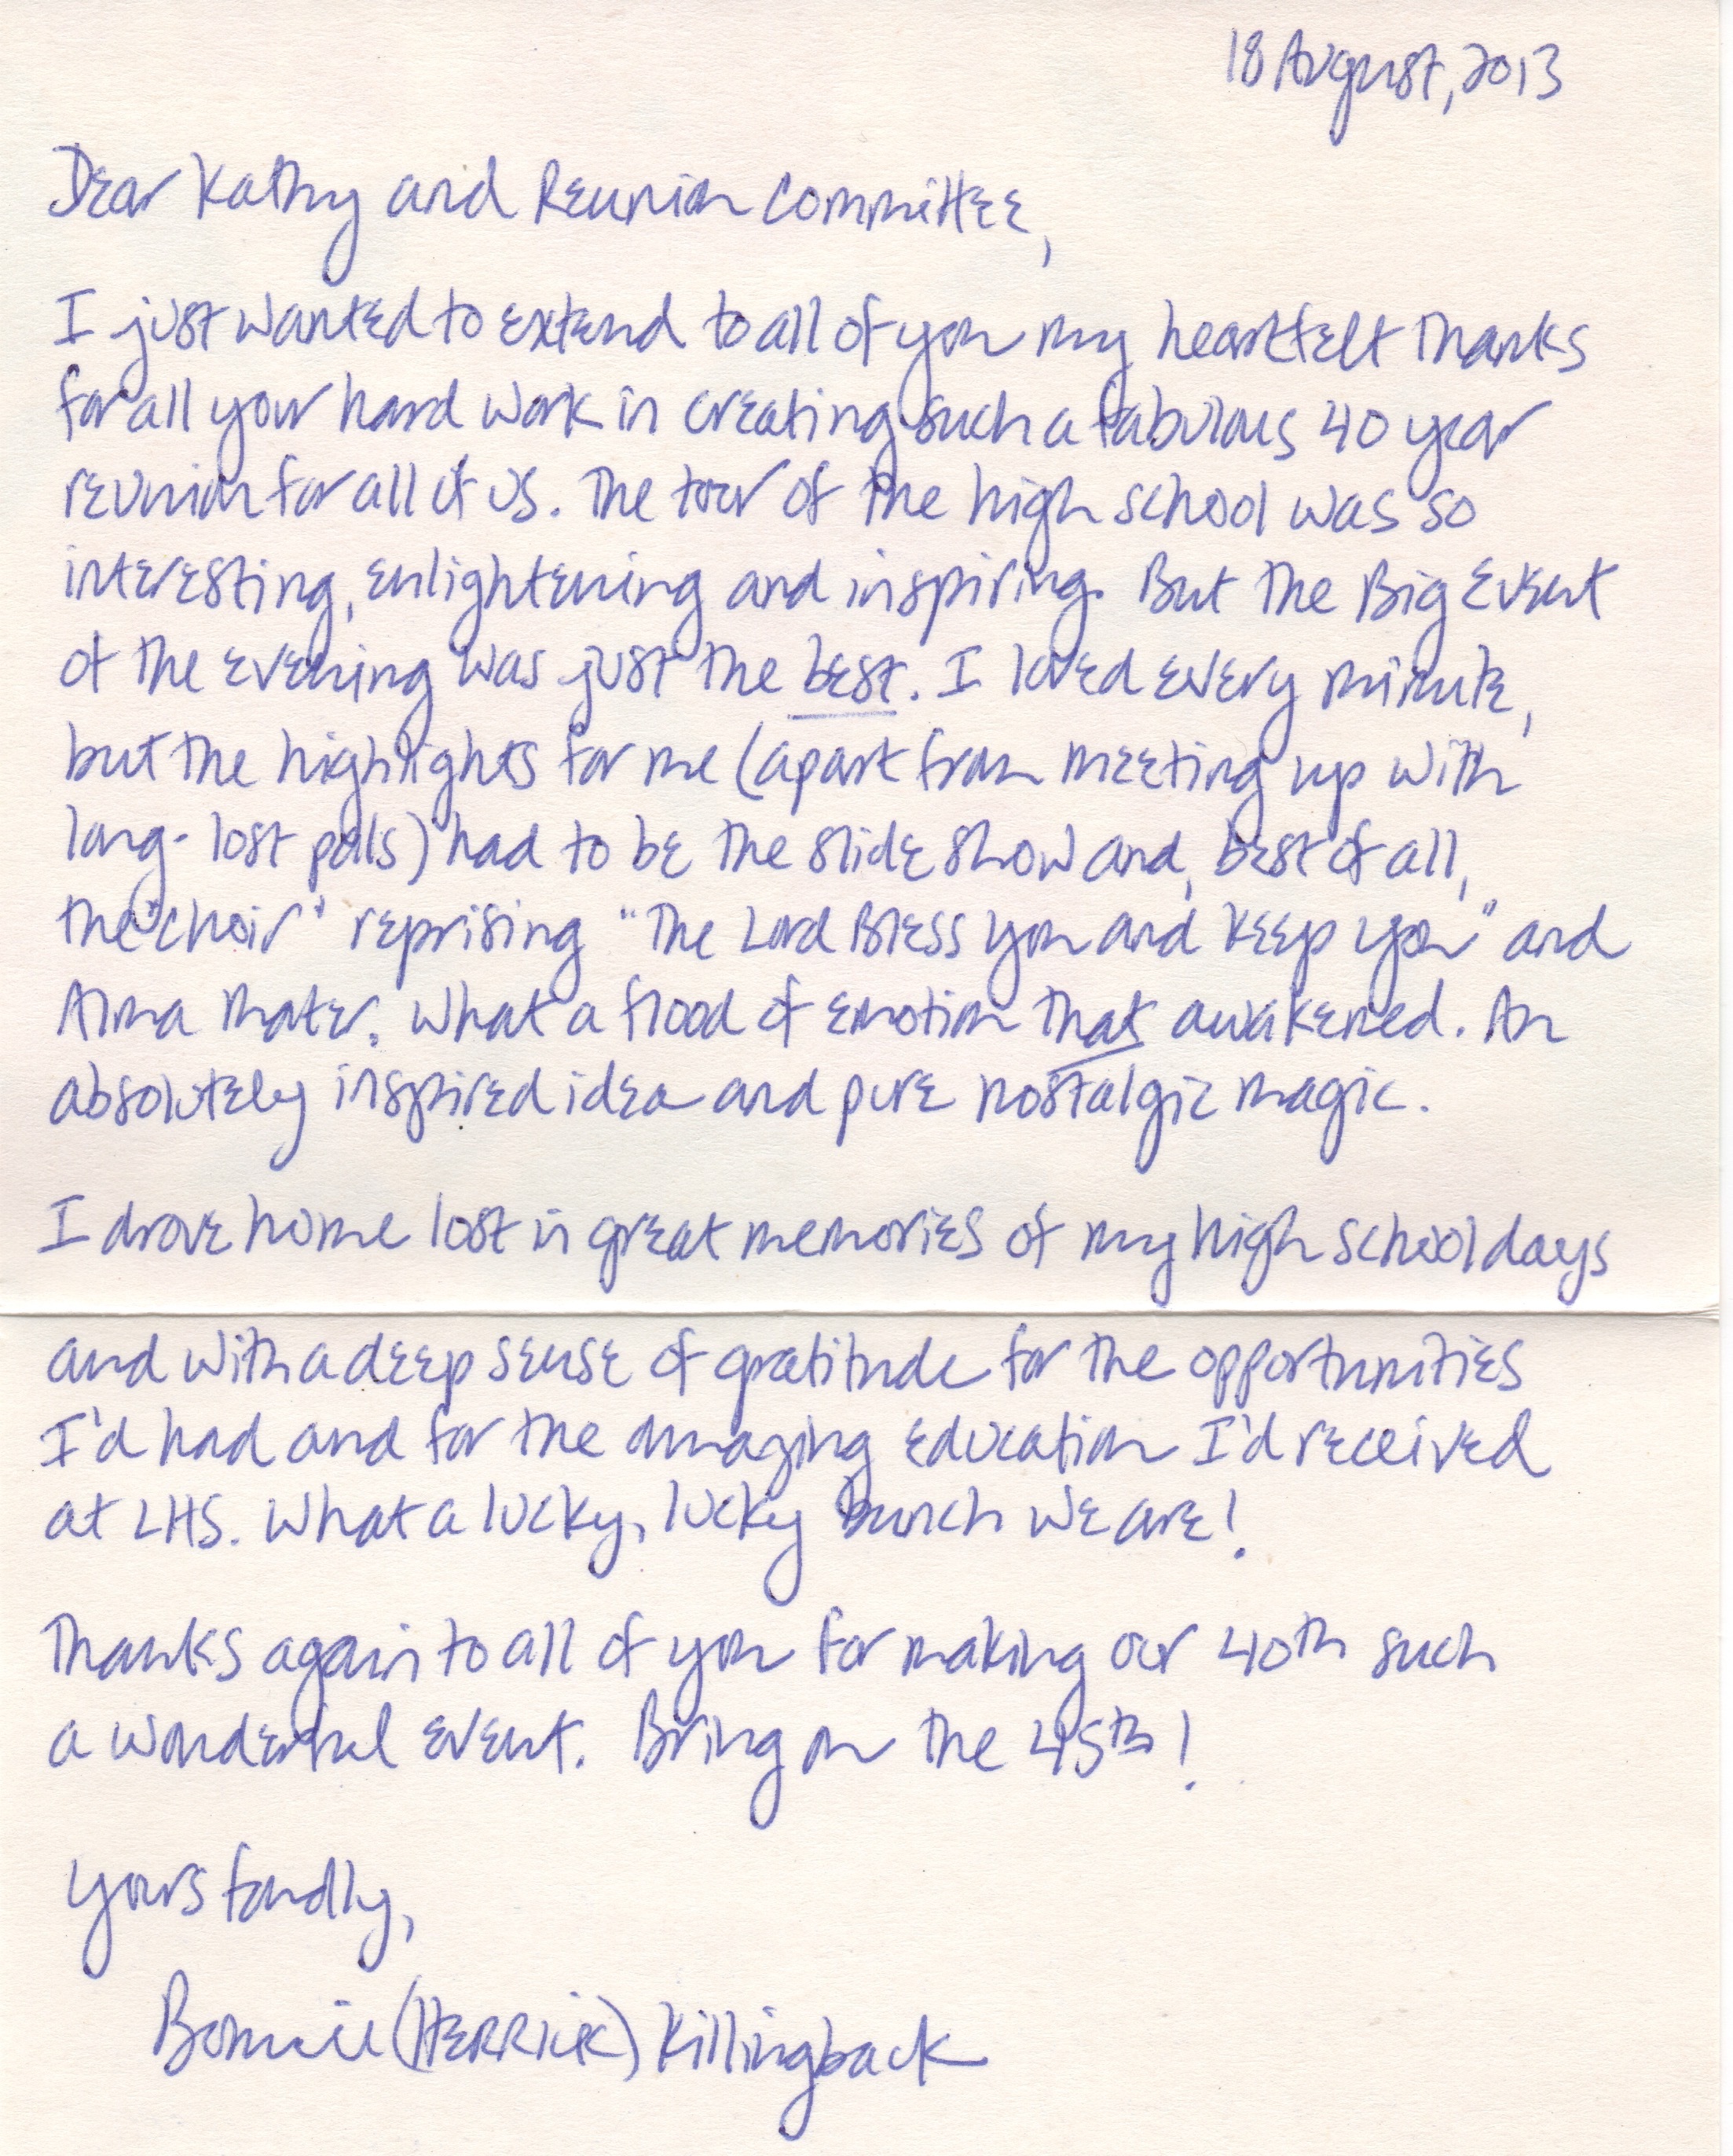 18 August, 2013
Dear Kathy and Reunion Committee,
I just wanted to extend to all of you my heartfelt thanks
for all your hard work in creating such a fabulous 40 year
reunion for all of us. The tour of the high school was so
interesting, enlightening and inspiring. But the Big Event
of the evening was just the best. I loved every minute,
but the highlights for me (apart from meeting up with
long-lost pals) had to be the slide show and, best of all,
the "choir" reprising "The Lord Bless You and Keep You" and
Alma Mater. What a flood of emotion that awakened. An
absolutely inspired idea and pure nostalgic magic.
I drove home lost in great memories of my high school days
and with a deep sense of gratitude for the opportunities
I'd had and for the amazing education I'd received
at LHS. What a lucky, lucky bunch we are!
Thanks again to all of you for making our 40th such
a wonderful event. Bring on the 45th!
Yours fondly,
Bonnie (HERRICK) Killingback